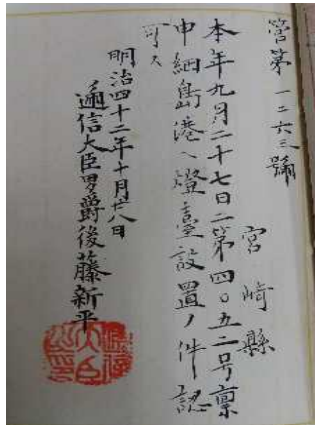 管第一二六三號
宮崎縣
本年九月二十七日二第四〇五二号稟
申細島港ヘ燈臺設置ノ件認
可ス
明治四十二年十月廿八日
逓信大臣男爵後藤新平
逓信大臣之印